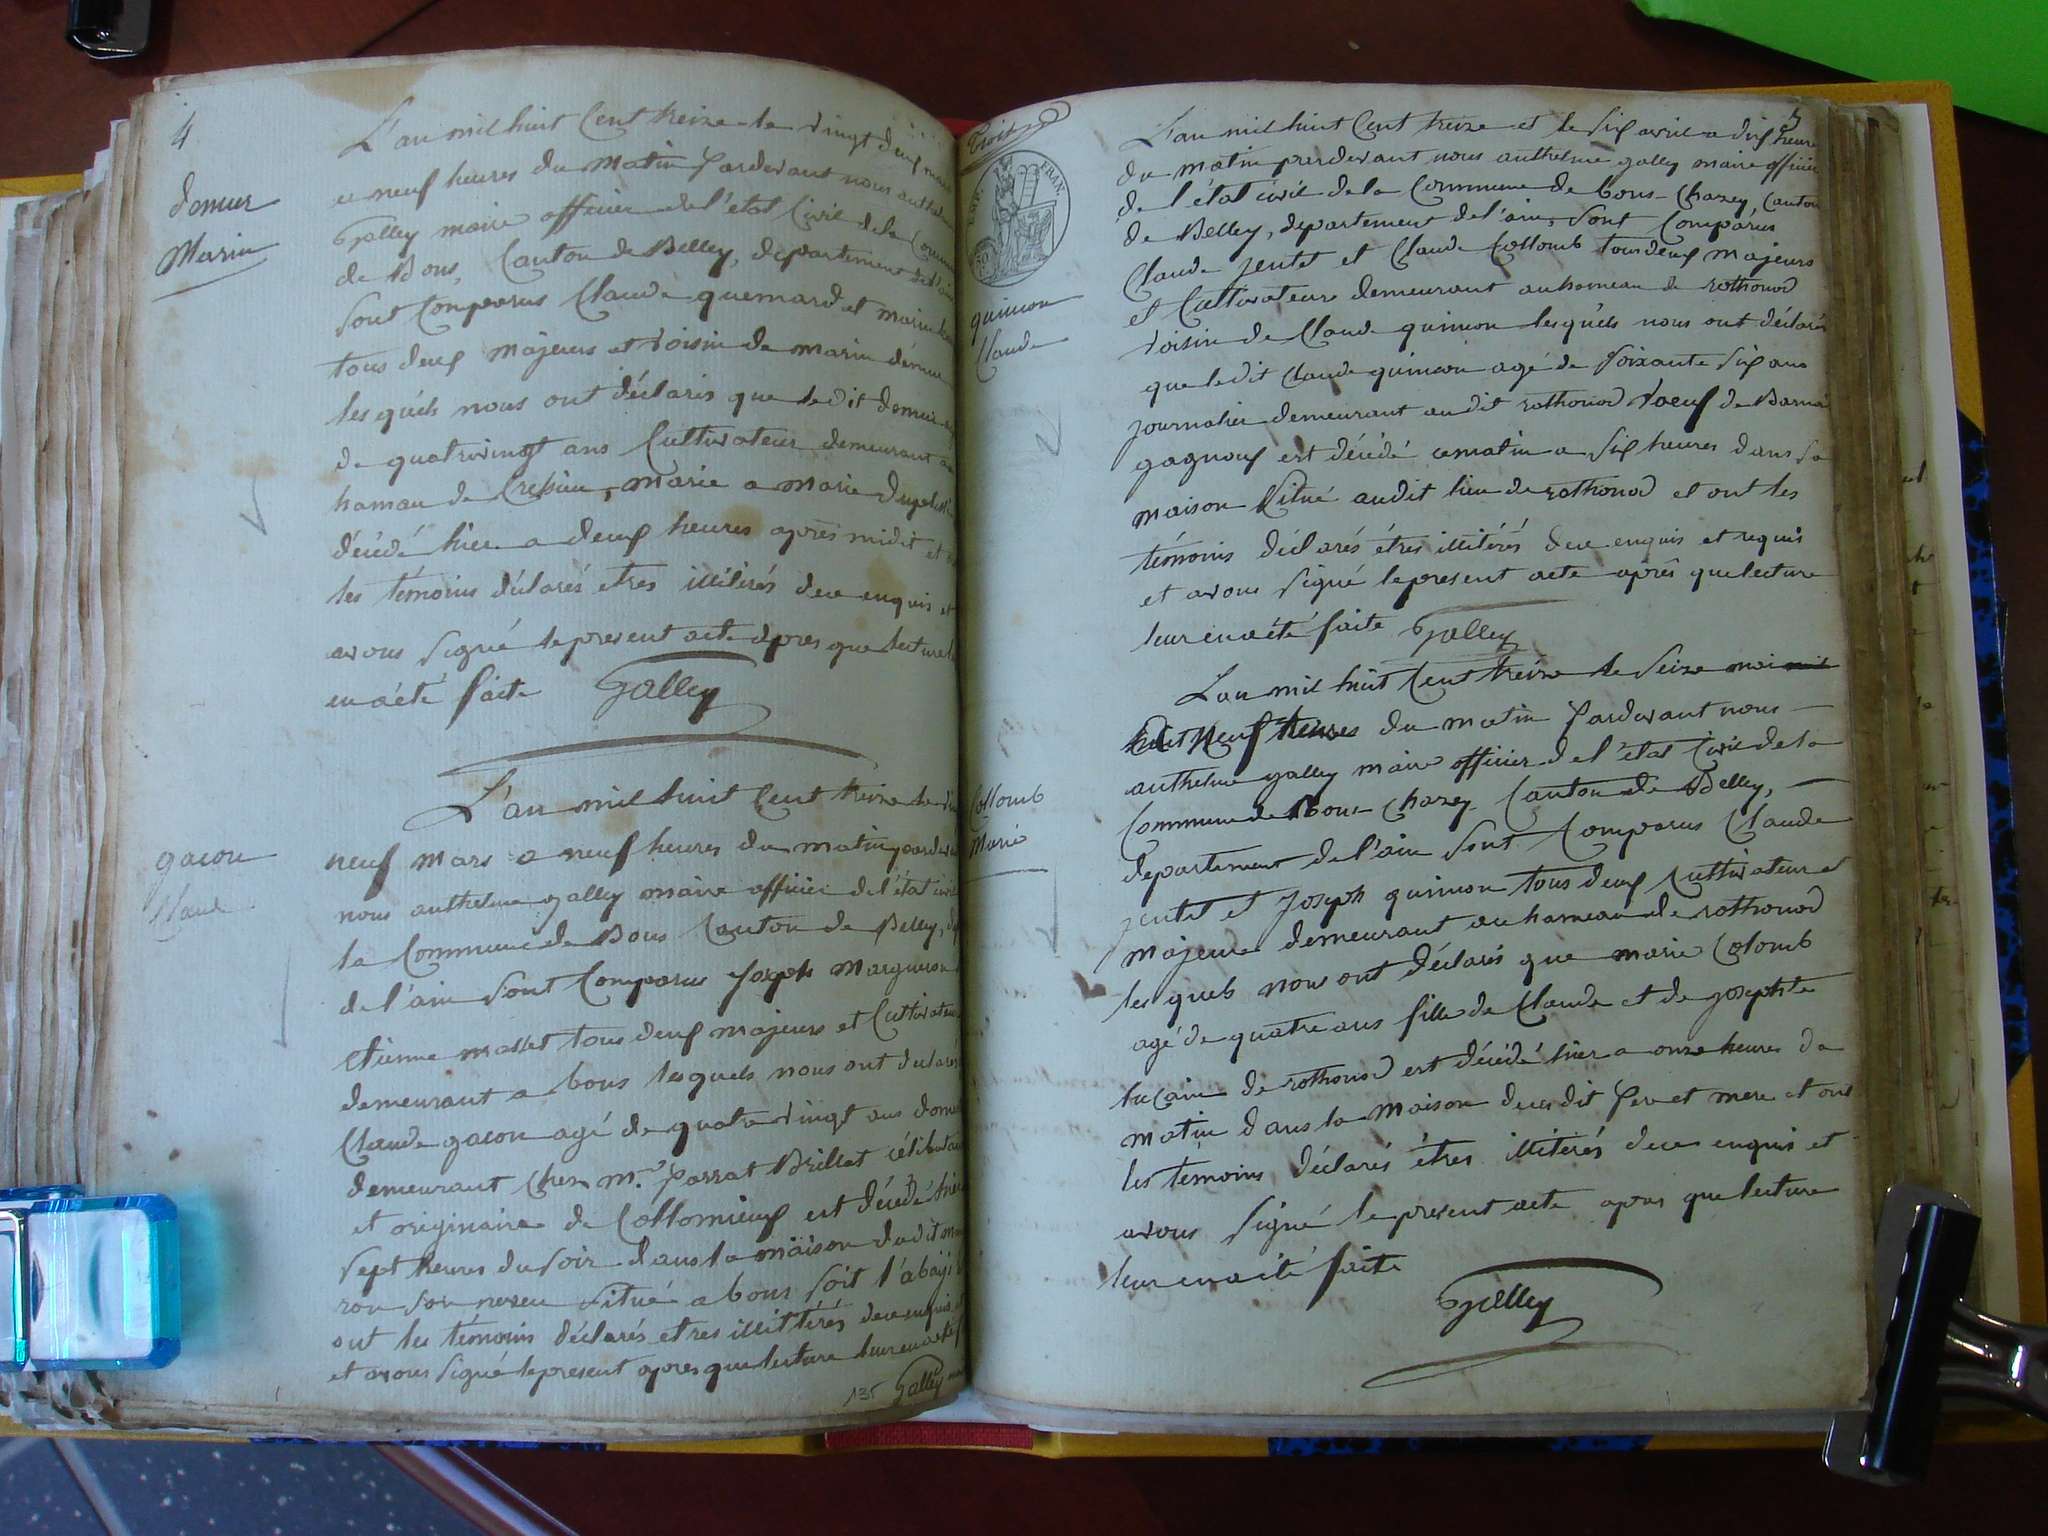 4
demeur
Marin
L'an mil huit Cent treize le vingt deux mars
a neuf heures du matin pardevant nous anthelme
Galley maire officier de l'état Civil de la Commune
de Bons, Canton de Belley, département de l'ain
sont Comparus Claude quemard et marin
tous deux majeurs et voisin de marin demeur
les quels nous ont déclarés que le dit demeur
de quatrevingt ans Cultivateur demeurant au
hamau de Cressieu, marié a marie
décédé hier a deux heures après midit et
les témoins déclarés etres illitérés de ce enquis et
avons signé le present acte apres que lecture
en a été faite Galley
gacon
Claude
L'an mil huit Cent treize le
neuf mars a neuf heures du matin pardevant
nous anthelme galley maire officier de l'état civil
la Commune de Bons Canton de Belley,
de l'ain sont Comparus Joseph Margueron
etienne mallet tous deux majeurs et Cultivateurs
demeurant a bons lesquels nous ont déclarés
Claude gacon agé de quatre vingt ans
demeurant Chez mr. parrat Brillat célibataire
et originaire de Collomieux est décédé hier
sept heures du soir dans la maison du dit
son neveu situé a bons soit l'abaÿe
ont les témoins déclarés etres illittérés de ce enquis
et avons signé le present apres que lecture leur en a été
135 Galley
3
Troit
EMP. FRAN.
quinson
Claude
L'an mil huit Cent treize et le six avril a dix heures
du matin pardevant nous anthelme galley maire officier
de l'état civil de la Commune de bons-Chazey, Canton
de Belley, departement de l'ain, sont Comparus
Claude jentet et Claude Collomb tous deux majeurs
et Cultivateurs demeurant au hameau de rothonod
voisin de Claude quinson lesquels nous ont déclarés
que le dit Claude quinson agé de soixante six ans
journalier demeurant au dit rothonod vaeuf de
gagnoux est décédé ce matin a six heures dans sa
maison situé au dit lieu de rothonod et ont les
témoins déclarés étres illitérés de ce enquis et requis
et avons signé le present acte après que lecture
leur en a été faite Galley
Collomb
Marie
L'an mil huit Cent treize le seize mai mil
huit Neuf heures du matin pardevant nous
anthelme galley maire officier de l'état Civil de la
Commune de Bons-Chazey Canton de Belley,
departement de l'ain sont Comparus Claude
jentet et Joseph quinson tous deux Cultivateur et
majeurs demeurant au hameau de rothonod
les quels nous ont déclarés que marie Colomb
agé de quatre ans fille de Claude et de josephte
lucain de rothonod est décédé hier a onze heures du
matin dans la maison de ces dit pere et mere et ont
les témoins déclarés étres illitérés de ce enquis et
avons signé le present acte apres que lecture
leur en a été faite
Galley